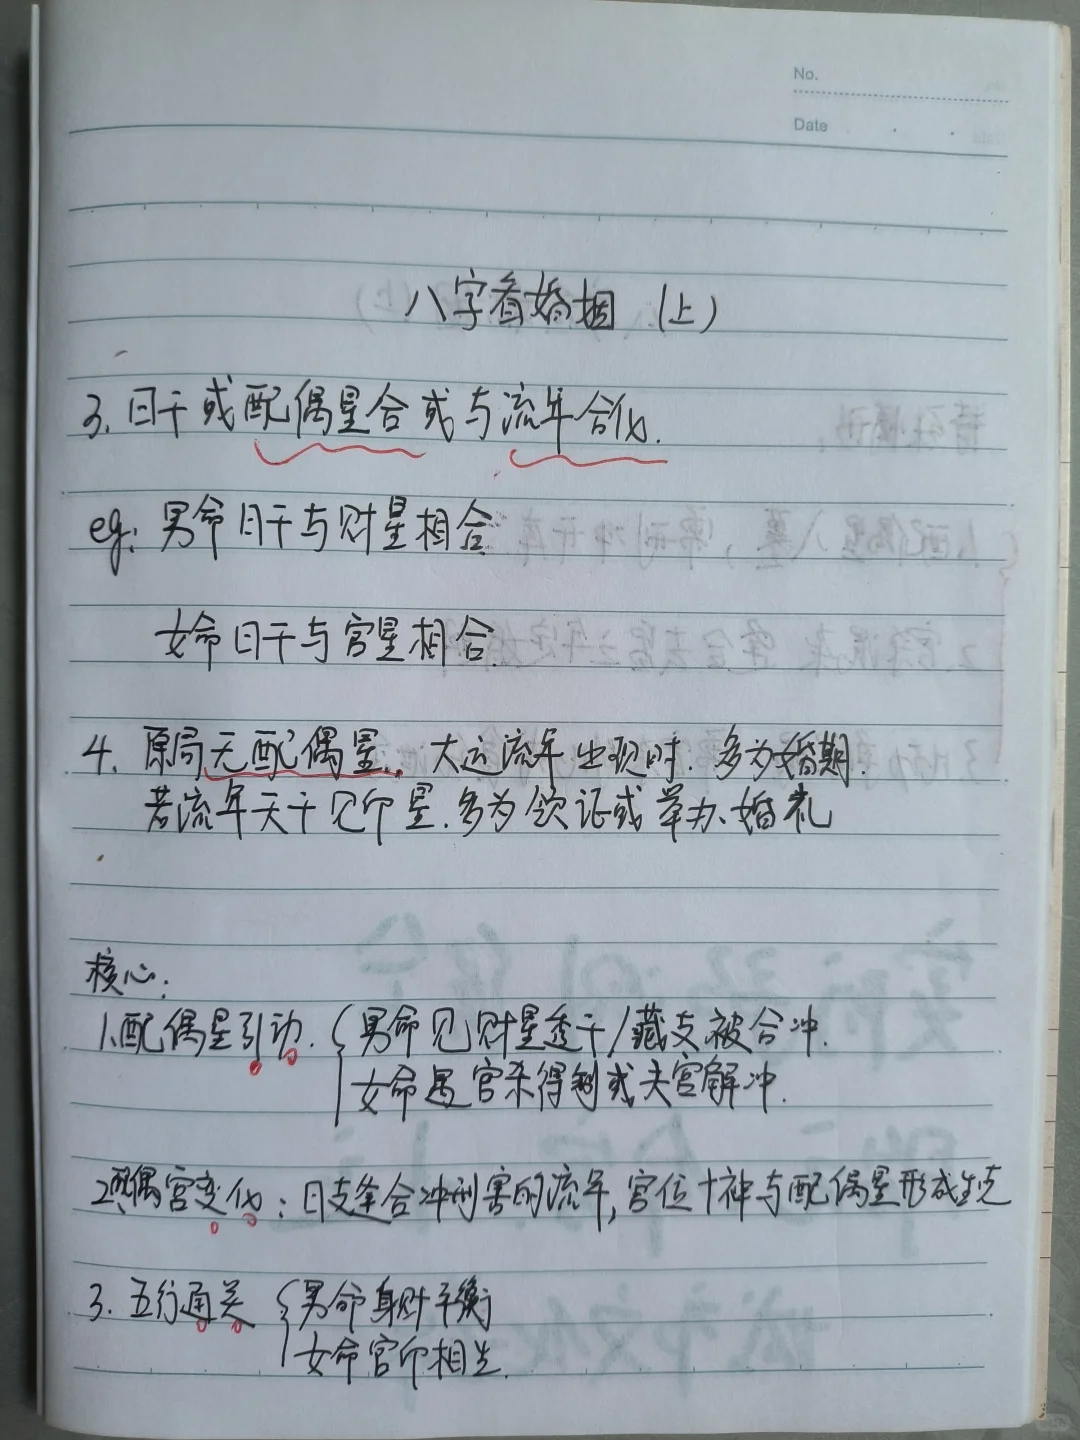 No.
Date
八字看婚姻（上）
3. 日干或配偶星合或与流年合化.
eg: 男命日干与财星相合.
女命日干与官星相合.
4. 原局无配偶星. 大运流年出现时. 多为婚期.
若流年天干见印星. 多为领证或举办婚礼
核心:
1.配偶星引动. { 男命见财星透干/藏支被合冲.
女命遇官杀得制或夫宫解冲.
2.配偶宫变化: 日支逢合冲刑害的流年, 宫位十神与配偶星形成生克
3. 五行通关 { 男命身财平衡
女命官印相生.